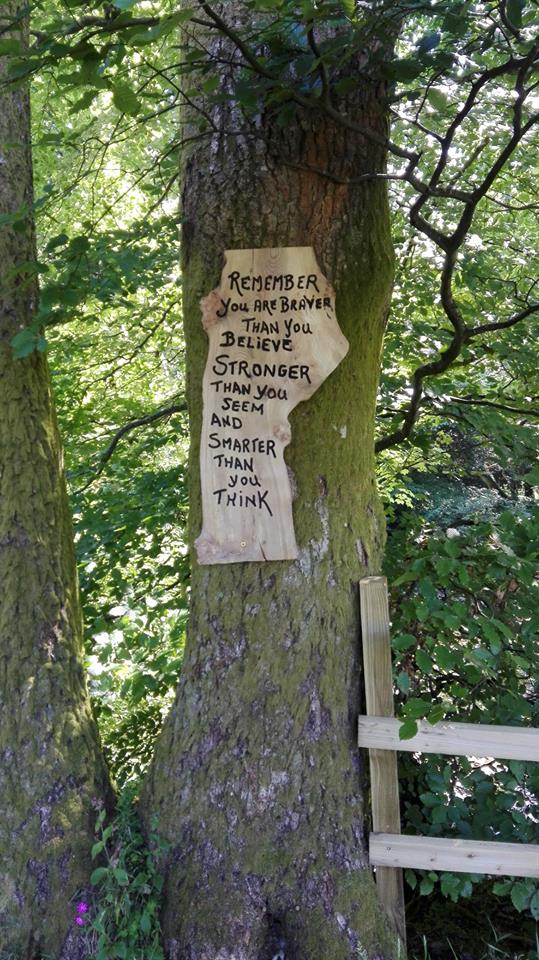 REMEMBER
YOU ARE BRAVER
THAN YOU
BELIEVE
STRONGER
THAN YOU
SEEM
AND
SMARTER
THAN
YOU
THINK